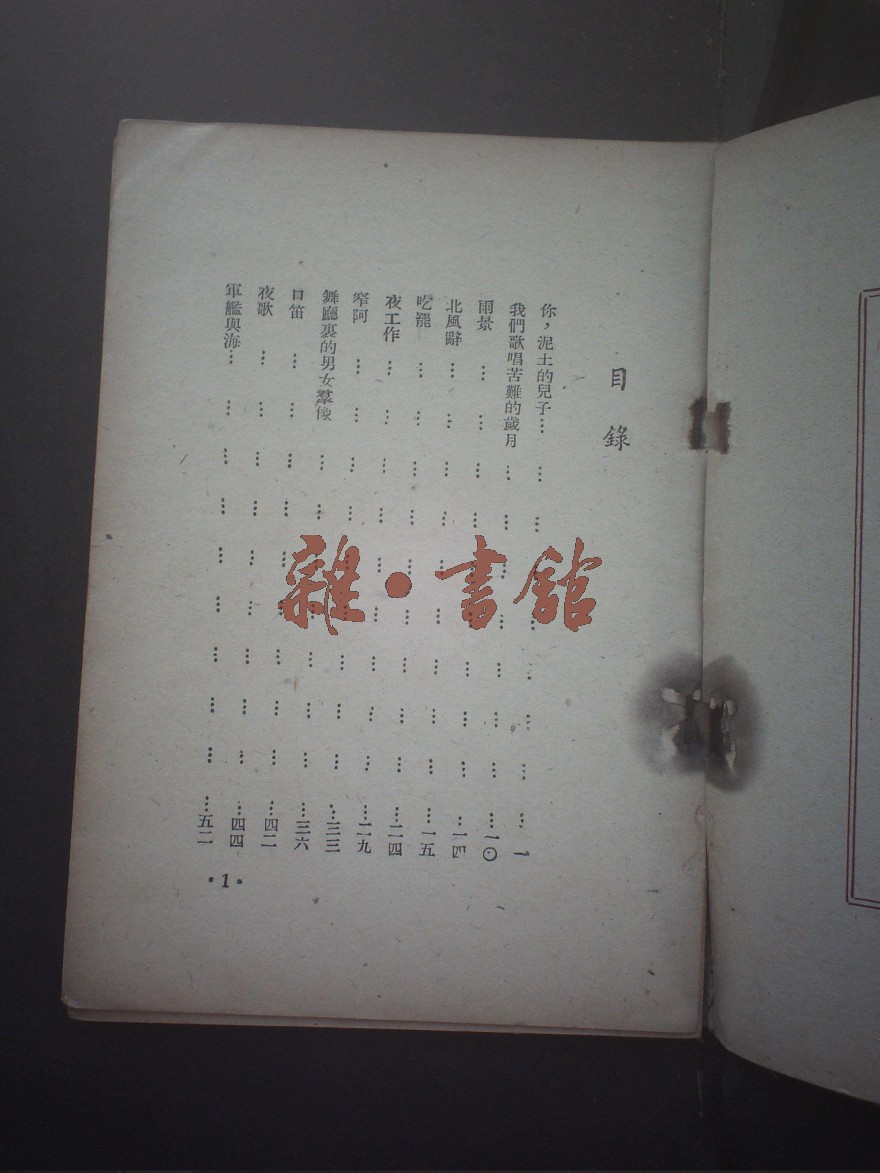 目錄
你，泥土的兒子………………一
我們歌唱苦難的歲月………………一〇
雨景………………一四
北風辭………………一五
吃罷………………二四
夜工作………………二九
窄阿………………三三
舞廳裏的男女羣像………………三六
口笛………………四二
夜歌………………四四
軍艦與海………………五二
•1•
雜•書館